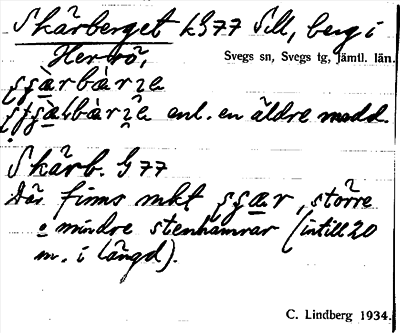 Skärberget kG77 Sill, berg i
Herrö,
Svegs sn, Svegs tg, Jämtl. län.
enl. en äldre medd.
Skärb. G77
Där finns mkt större
o mindre stenhamrar (intill 20
m. i längd).
C. Lindberg 1934.